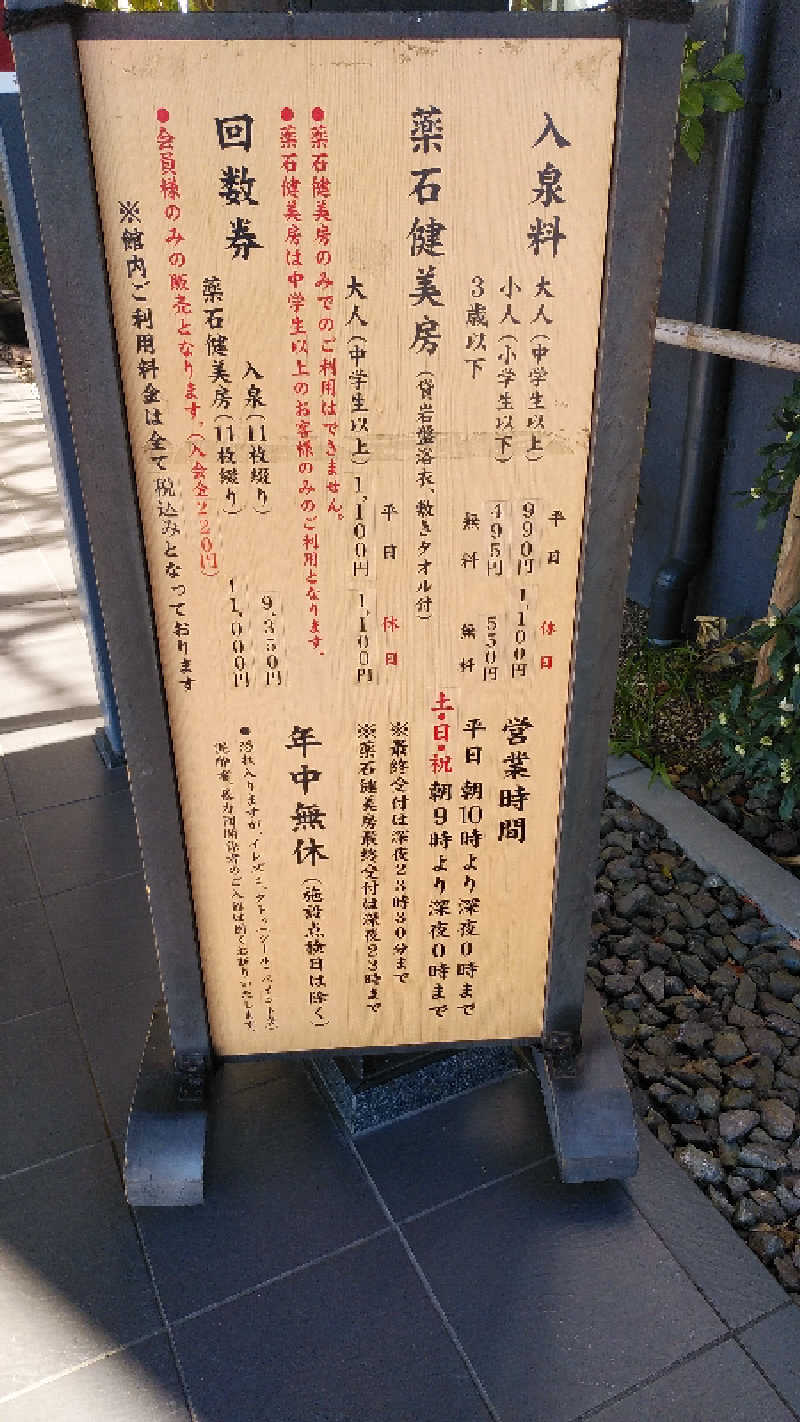 入泉料
平日 休日
大人（中学生以上） 990円 1,100円
小人（小学生以下） 495円 550円
3歳以下 無料 無料
薬石健美房（貸岩盤浴衣、敷きタオル付）
平日 休日
大人（中学生以上） 1,100円 1,100円
●薬石健美房のみでのご利用はできません。
●薬石健美房は中学生以上のお客様のみのご利用となります。
回数券
入泉（11枚綴り） 9,350円
薬石健美房（11枚綴り） 11,000円
●会員様のみの販売となります。（入会金220円）
※館内ご利用料金は全て税込みとなっております
営業時間
平日 朝10時より深夜0時まで
土・日・祝 朝9時より深夜0時まで
※最終受付は深夜23時30分まで
※薬石健美房最終受付は深夜23時まで
年中無休（施設点検日は除く）